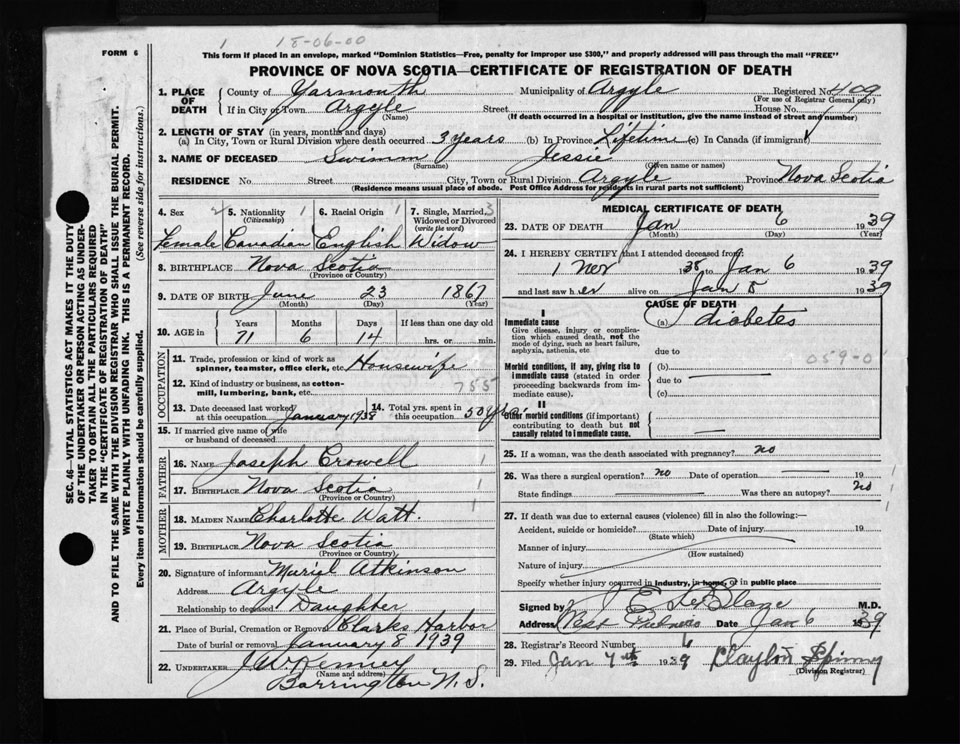 1 18-06-00
FORM 6
This form if placed in an envelope, marked "Dominion Statistics—Free, penalty for improper use $300," and properly addressed will pass through the mail "FREE"
PROVINCE OF NOVA SCOTIA—CERTIFICATE OF REGISTRATION OF DEATH
SEC. 46—VITAL STATISTICS ACT MAKES IT THE DUTY
OF THE UNDERTAKER OR PERSON ACTING AS UNDER-
TAKER TO OBTAIN ALL THE PARTICULARS REQUIRED
IN THE "CERTIFICATE OF REGISTRATION OF DEATH"
AND TO FILE THE SAME WITH THE DIVISION REGISTRAR WHO SHALL ISSUE THE BURIAL PERMIT.
WRITE PLAINLY WITH UNFADING INK. THIS IS A PERMANENT RECORD.
Every item of information should be carefully supplied. (See reverse side for instructions.)
1. PLACE OF DEATH County of Yarmouth Municipality of Argyle Registered No. 409
(For use of Registrar General only)
If in City or Town Argyle Street House No.
(Name) (If death occurred in a hospital or institution, give the name instead of street and number)
2. LENGTH OF STAY (in years, months and days)
(a) In City, Town or Rural Division where death occurred 3 years (b) In Province Lifetime (c) In Canada (if immigrant)
3. NAME OF DECEASED Swimm Jessie
(Surname) (Given name or names)
RESIDENCE No. Street City, Town or Rural Division Argyle Province Nova Scotia
(Residence means usual place of abode. Post Office Address for residents in rural parts not sufficient)
4. Sex 2 5. Nationality 1 6. Racial Origin 1 7. Single, Married, 3
(Citizenship) Widowed or Divorced
(write the word)
Female Canadian English Widow
8. BIRTHPLACE Nova Scotia
(Province or Country)
9. DATE OF BIRTH June 23 1867
(Month) (Day) (Year)
10. AGE in Years Months Days If less than one day old
71 6 14 hrs. or min.
OCCUPATION
11. Trade, profession or kind of work as
spinner, teamster, office clerk, etc. Housewife
12. Kind of industry or business, as cotton-
mill, lumbering, bank, etc. 755
13. Date deceased last worked
at this occupation January 1938
14. Total yrs. spent in
this occupation 50 yrs.
15. If married give name of wife
or husband of deceased
FATHER
16. NAME Joseph Crowell 1
17. BIRTHPLACE Nova Scotia 1
(Province or Country)
MOTHER
18. MAIDEN NAME Charlotte Watt. 1
19. BIRTHPLACE Nova Scotia
(Province or Country)
20. Signature of informant Muriel Atkinson
Address Argyle
Relationship to deceased Daughter
21. Place of Burial, Cremation or Removal Clarks Harbor
Date of burial or removal January 8 1939
22. UNDERTAKER J. W. Kenney
(Name and address)
Barrington N. S.
MEDICAL CERTIFICATE OF DEATH
23. DATE OF DEATH Jan 6 1939
(Month) (Day) (Year)
24. I HEREBY CERTIFY that I attended deceased from:
1 Nov 1938 to Jan 6 1939
and last saw her alive on Jan 5 1939
CAUSE OF DEATH
I
Immediate cause (a) diabetes
Give disease, injury or complica-
tion which caused death, not the
mode of dying, such as heart failure,
asphyxia, asthenia, etc
due to 059-0
Morbid conditions, if any, giving rise to
immediate cause (stated in order
proceeding backwards from im-
mediate cause).
(b)
due to
(c)
II
Other morbid conditions (if important)
contributing to death but not
causally related to immediate cause.
25. If a woman, was the death associated with pregnancy? no
26. Was there a surgical operation? no Date of operation 19
State findings Was there an autopsy? no
27. If death was due to external causes (violence) fill in also the following:—
Accident, suicide or homicide? Date of injury 19
(State which)
Manner of injury
(How sustained)
Nature of injury
Specify whether injury occurred in industry, in home, or in public place
Signed by M.D.
Address West Date Jan 6 1939
28. Registrar's Record Number 6
29. Filed Jan 7th 1939 Clayton Spinney
(Division Registrar)